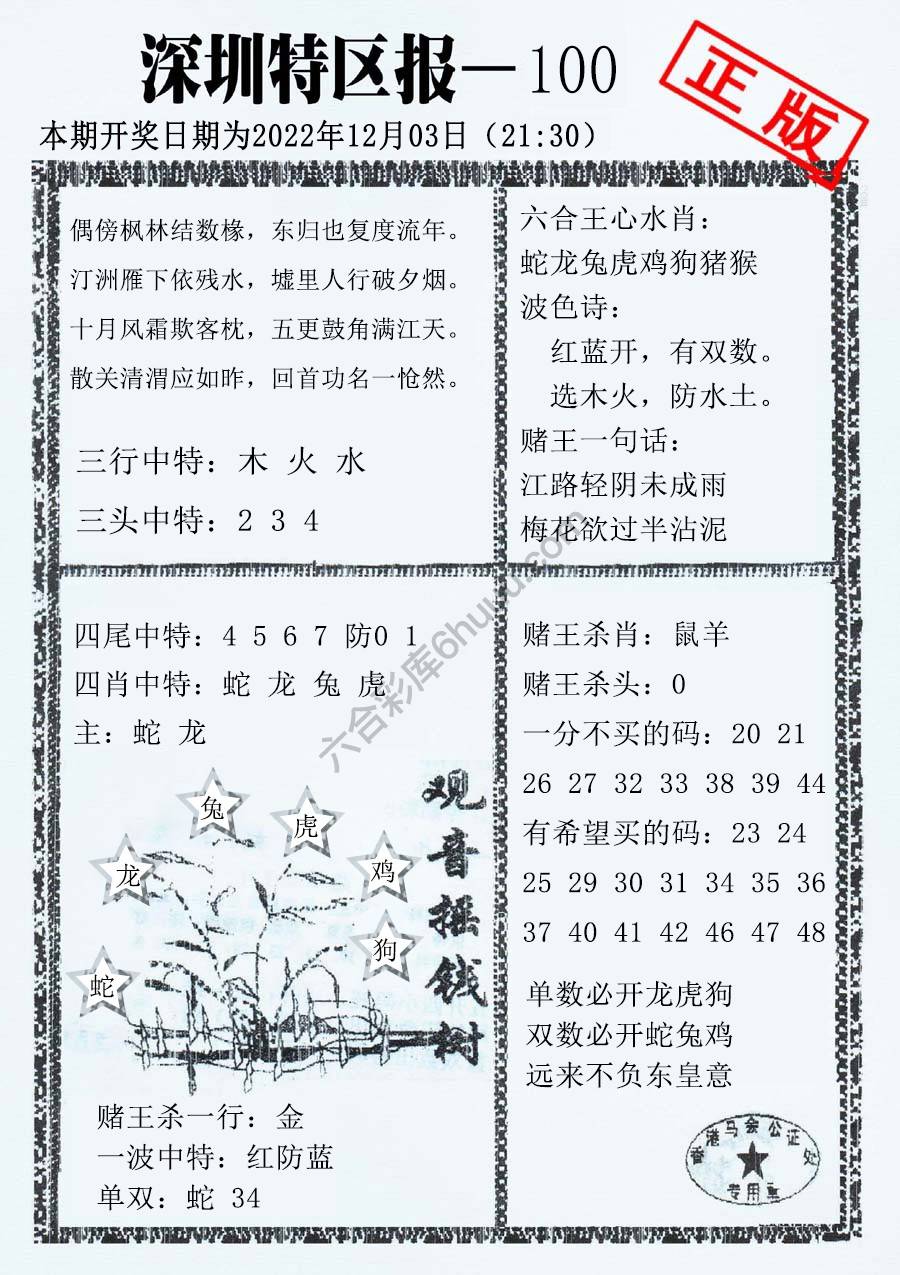 深圳特区报—100
正版
本期开奖日期为2022年12月03日（21:30）
偶傍枫林结数椽，东归也复度流年。
汀洲雁下依残水，墟里人行破夕烟。
十月风霜欺客枕，五更鼓角满江天。
散关清渭应如昨，回首功名一怆然。
三行中特：木 火 水
三头中特：2 3 4
六合王心水肖：
蛇龙兔虎鸡狗猪猴
波色诗：
红蓝开，有双数。
选木火，防水土。
赌王一句话：
江路轻阴未成雨
梅花欲过半沾泥
四尾中特：4 5 6 7 防0 1
四肖中特：蛇 龙 兔 虎
主：蛇 龙
兔
虎
龙
鸡
狗
蛇
观音摇钱树
赌王杀一行：金
一波中特：红防蓝
单双：蛇 34
赌王杀肖：鼠羊
赌王杀头：0
一分不买的码：20 21
26 27 32 33 38 39 44
有希望买的码：23 24
25 29 30 31 34 35 36
37 40 41 42 46 47 48
单数必开龙虎狗
双数必开蛇兔鸡
远来不负东皇意
香港马会公证处
专用章
六合彩库6huuu.com